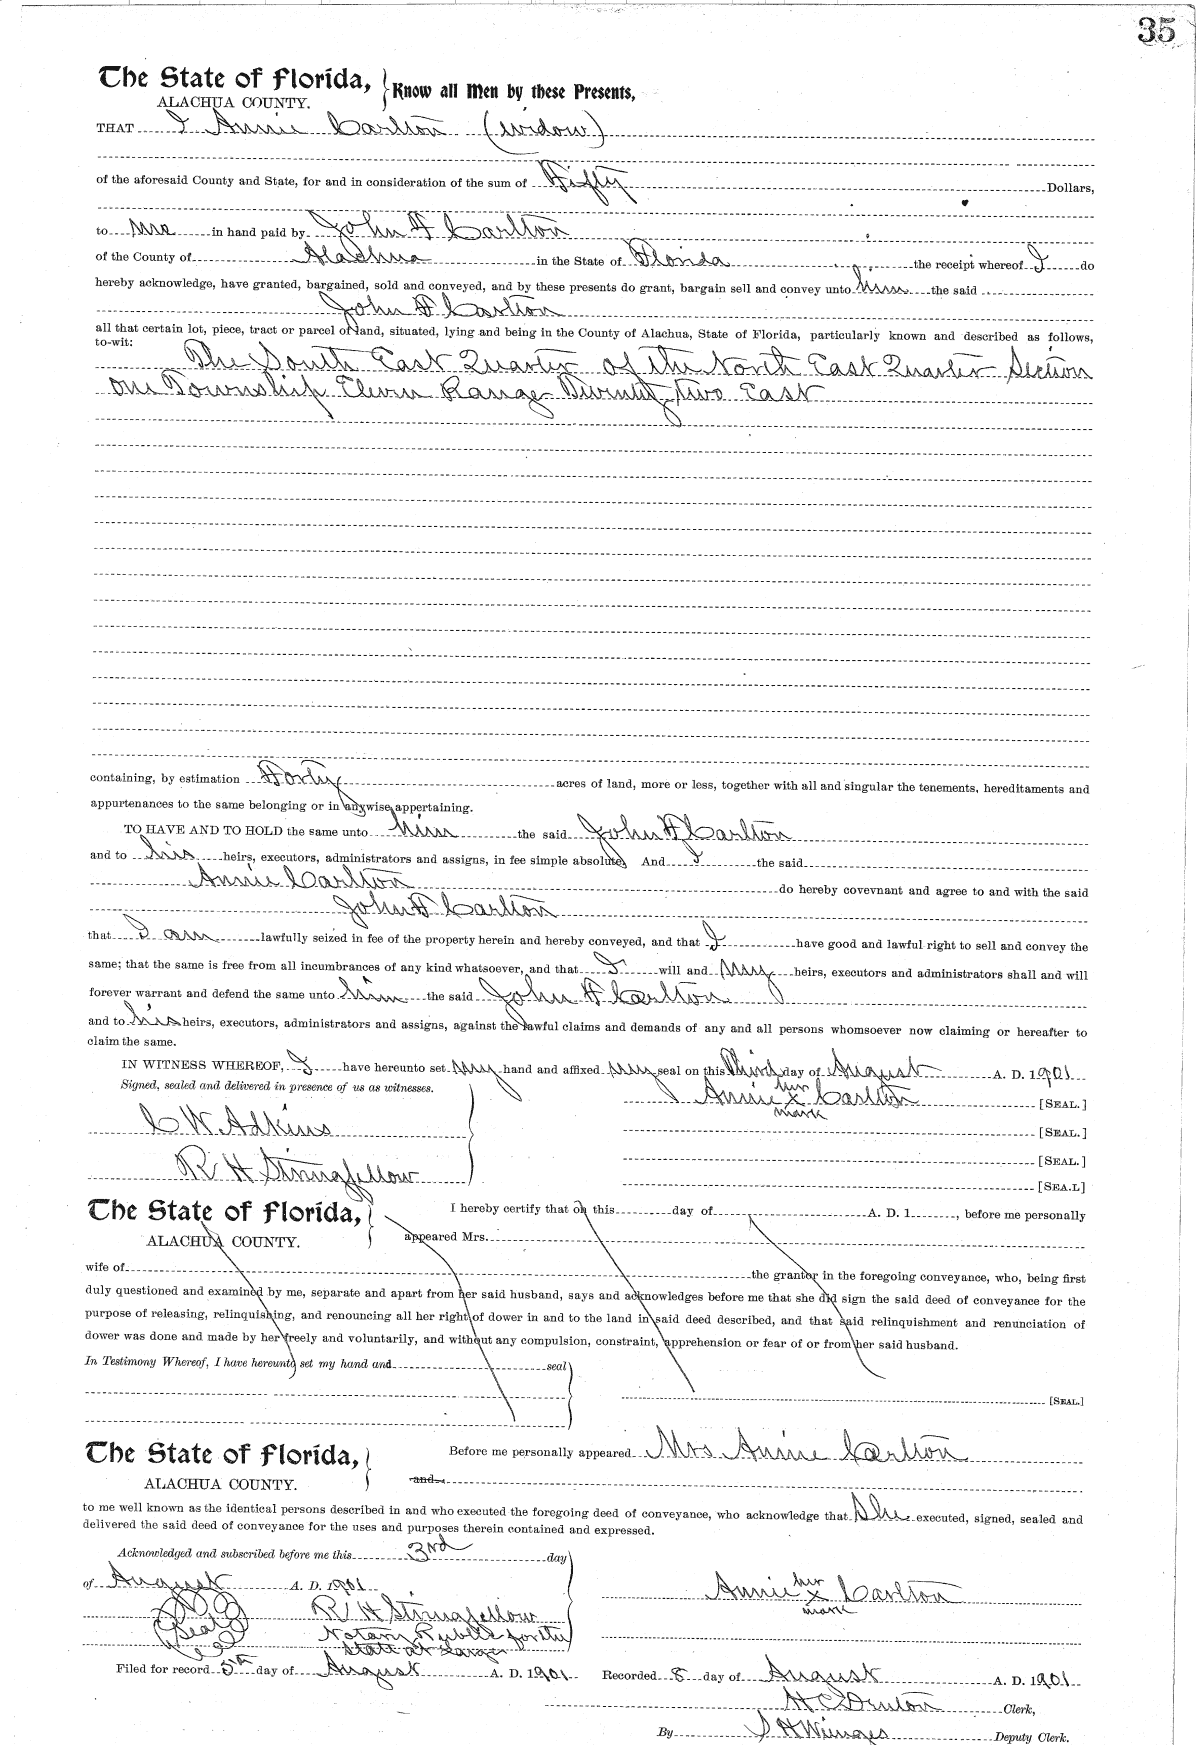 35
The State of Florida, Know all Men by these Presents,
ALACHUA COUNTY.
THAT I Annie Carlton (widow)
of the aforesaid County and State, for and in consideration of the sum of Fifty Dollars,
to me in hand paid by John F Carlton
of the County of Alachua in the State of Florida the receipt whereof I do
hereby acknowledge, have granted, bargained, sold and conveyed, and by these presents do grant, bargain sell and convey unto him the said
John F Carlton
all that certain lot, piece, tract or parcel of land, situated, lying and being in the County of Alachua, State of Florida, particularly known and described as follows,
to-wit:
The South East Quarter of the North East Quarter Section
one Township Eleven Range Twenty two East
containing, by estimation Forty acres of land, more or less, together with all and singular the tenements, hereditaments and
appurtenances to the same belonging or in anywise appertaining.
TO HAVE AND TO HOLD the same unto him the said John F Carlton
and to his heirs, executors, administrators and assigns, in fee simple absolute, And I the said
Annie Carlton do hereby covevnant and agree to and with the said
John F Carlton
that I am lawfully seized in fee of the property herein and hereby conveyed, and that I have good and lawful right to sell and convey the
same; that the same is free from all incumbrances of any kind whatsoever, and that I will and my heirs, executors and administrators shall and will
forever warrant and defend the same unto him the said John F Carlton
and to his heirs, executors, administrators and assigns, against the lawful claims and demands of any and all persons whomsoever now claiming or hereafter to
claim the same.
IN WITNESS WHEREOF, I have hereunto set my hand and affixed my seal on this Third day of August A. D. 1901
Signed, sealed and delivered in presence of us as witnesses.
Annie her x mark Carlton [SEAL.]
C W Adkins [SEAL.]
[SEAL.]
R H Stringfellow [SEA.L]
The State of Florida, I hereby certify that on this day of A. D. 1 , before me personally
ALACHUA COUNTY. appeared Mrs.
wife of the grantor in the foregoing conveyance, who, being first
duly questioned and examined by me, separate and apart from her said husband, says and acknowledges before me that she did sign the said deed of conveyance for the
purpose of releasing, relinquishing, and renouncing all her right of dower in and to the land in said deed described, and that said relinquishment and renunciation of
dower was done and made by her freely and voluntarily, and without any compulsion, constraint, apprehension or fear of or from her said husband.
In Testimony Whereof, I have hereunto set my hand and seal
[SEAL.]
The State of Florida, Before me personally appeared Mrs Annie Carlton
ALACHUA COUNTY. and
to me well known as the identical persons described in and who executed the foregoing deed of conveyance, who acknowledge that She executed, signed, sealed and
delivered the said deed of conveyance for the uses and purposes therein contained and expressed.
Acknowledged and subscribed before me this 3rd day
of August A. D. 1901
Annie her x mark Carlton
Seal R H Stringfellow
Notary Public for the
State at Large
Filed for record 5th day of August A. D. 1901 Recorded 8 day of August A. D. 1901
H C Denton Clerk,
By S H Wienges Deputy Clerk.